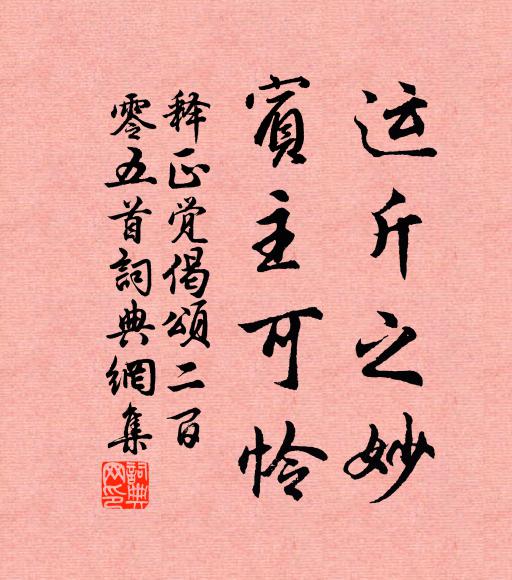 运斤之妙
賓主可怜
释正觉偈頌二百
零五首詞典網集
詞典
网印